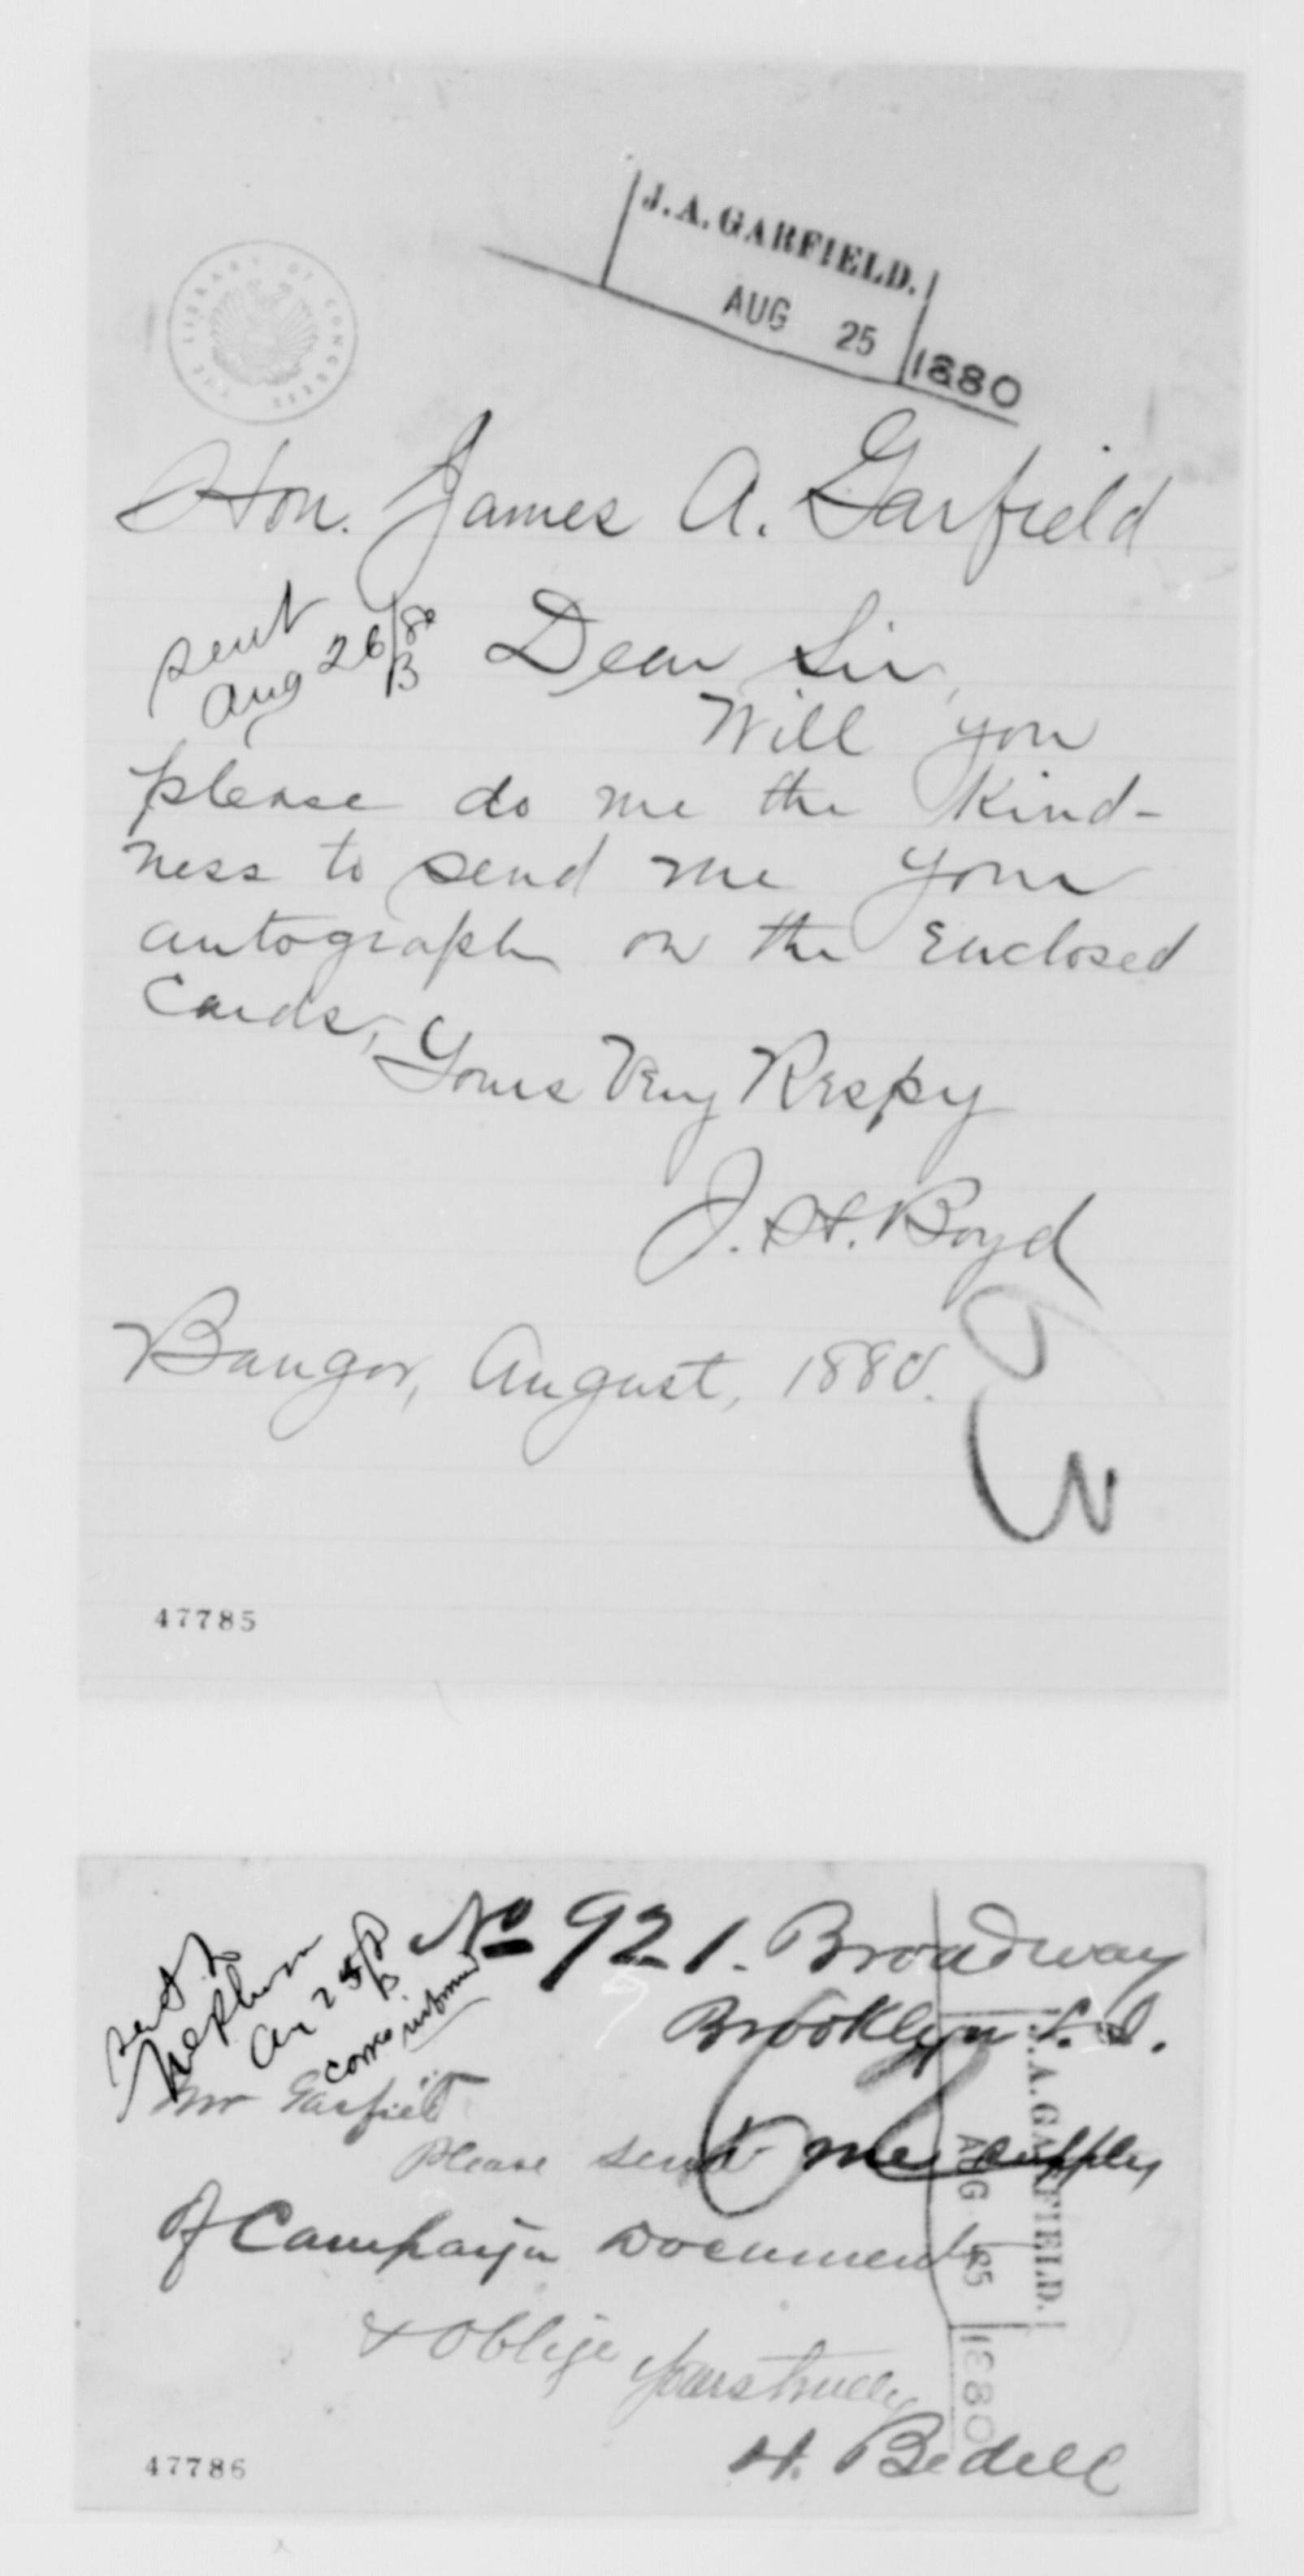 J. A. GARFIELD.
AUG 25 1880
THE LIBRARY OF CONGRESS
Hon. James A. Garfield
sent
Aug 26/80
B
Dear Sir,
Will you
please do me the kind-
ness to send me your
autograph on the enclosed
Cards,
Yours Very Respy
J. H. Boyd
Bangor, August, 1880.
47785
No 921. Broadway
Brooklyn L. I.
sent to
Au 25/80
B
Mr Garfield
Please send me supply
of Campaign Documents
& Oblige Yours truly
H. Bedell
J. A. GARFIELD.
AUG 25 1880
47786